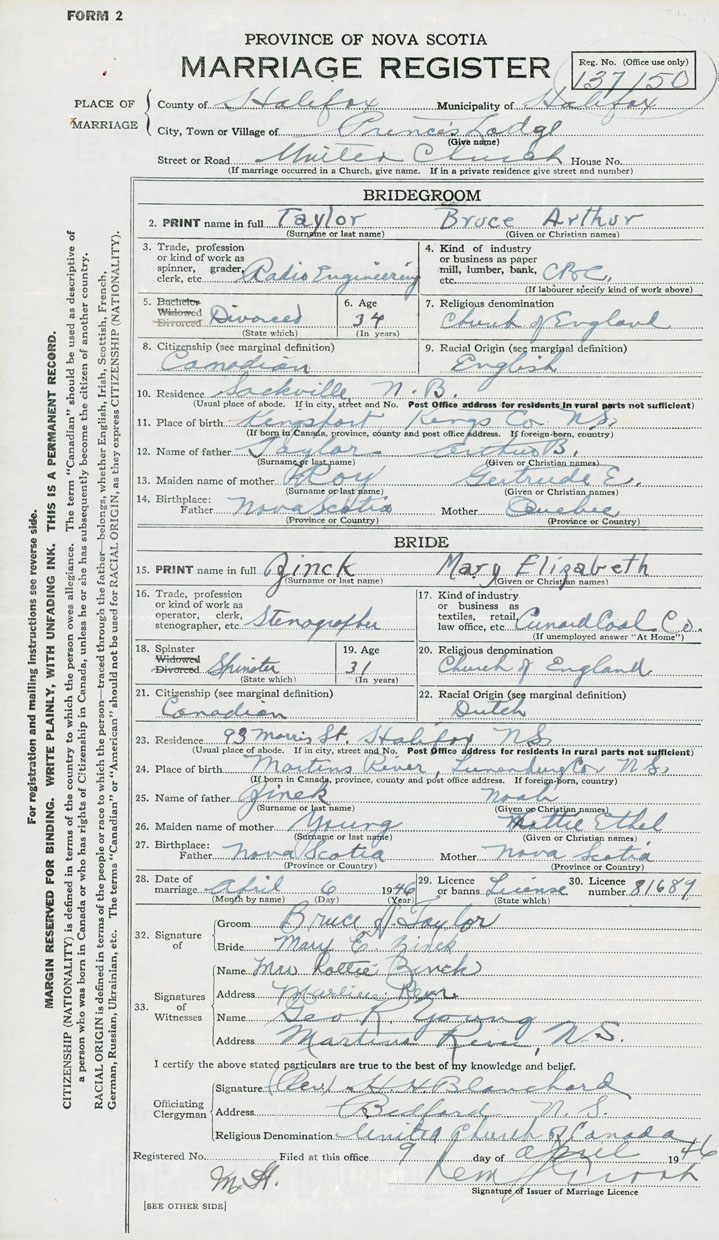 FORM 2
PROVINCE OF NOVA SCOTIA
MARRIAGE REGISTER
Reg. No. (Office use only)
137150
PLACE OF MARRIAGE
County of Halifax Municipality of Halifax
City, Town or Village of Princes Lodge
(Give name)
Street or Road United Church House No.
(If marriage occurred in a Church, give name. If in a private residence give street and number)
BRIDEGROOM
2. PRINT name in full Taylor Bruce Arthur
(Surname or last name) (Given or Christian names)
3. Trade, profession or kind of work as spinner, grader, clerk, etc. Radio Engineering
4. Kind of industry or business as paper mill, lumber, bank, etc. CBC
(If labourer specify kind of work above)
5. Bachelor Widowed Divorced Divorced
(State which)
6. Age 34
(In years)
7. Religious denomination
Church of England
8. Citizenship (see marginal definition)
Canadian
9. Racial Origin (see marginal definition)
English
10. Residence Sackville N.B.
(Usual place of abode. If in city, street and No. Post Office address for residents in rural parts not sufficient)
11. Place of birth Kingsport Kings Co. N.S.
(If born in Canada, province, county and post office address. If foreign-born, country)
12. Name of father Taylor Arthur B.
(Surname or last name) (Given or Christian names)
13. Maiden name of mother Roy Gertrude E.
(Surname or last name) (Given or Christian names)
14. Birthplace: Father Nova Scotia Mother Quebec
(Province or Country) (Province or Country)
BRIDE
15. PRINT name in full Zinck Mary Elizabeth
(Surname or last name) (Given or Christian names)
16. Trade, profession or kind of work as operator, clerk, stenographer, etc Stenographer
17. Kind of industry or business as textiles, retail, law office, etc. Cunard Coal Co.
(If unemployed answer "At Home")
18. Spinster Widowed Divorced Spinster
(State which)
19. Age 31
(In years)
20. Religious denomination
Church of England
21. Citizenship (see marginal definition)
Canadian
22. Racial Origin (see marginal definition)
Dutch
23. Residence 93 Morris St. Halifax N.S.
(Usual place of abode. If in city, street and No. Post Office address for residents in rural parts not sufficient)
24. Place of birth Martins River, Lunenburg Co. N.S.
(If born in Canada, province, county and post office address. If foreign-born, country)
25. Name of father Zinck Noah
(Surname or last name) (Given or Christian names)
26. Maiden name of mother Young Hattie Ethel
(Surname or last name) (Given or Christian names)
27. Birthplace: Father Nova Scotia Mother Nova Scotia
(Province or Country) (Province or Country)
28. Date of marriage April 6 1946
(Month by name) (Day) (Year)
29. Licence or banns License
(State which)
30. Licence number 81689
32. Signature of
Groom Bruce A Taylor
Bride Mary E. Zinck
33. Signatures of Witnesses
Name Mrs Hattie Zinck
Address Martins River
Name Geo R Young
Address Martins River, N.S.
I certify the above stated particulars are true to the best of my knowledge and belief.
Officiating Clergyman
Signature (Rev) H. H. Blanchard
Address Bedford N.S.
Religious Denomination United Church of Canada
Registered No. Filed at this office 9 day of April 1946
M.H.
Signature of Issuer of Marriage Licence
[SEE OTHER SIDE]
For registration and mailing instructions see reverse side.
MARGIN RESERVED FOR BINDING. WRITE PLAINLY, WITH UNFADING INK. THIS IS A PERMANENT RECORD.
CITIZENSHIP (NATIONALITY) is defined in terms of the country to which the person owes allegiance. The term "Canadian" should be used as descriptive of
a person who was born in Canada or who has rights of Citizenship in Canada, unless he or she has subsequently become the citizen of another country.
RACIAL ORIGIN is defined in terms of the people or race to which the person—traced through the father—belongs, whether English, Irish, Scottish, French,
German, Russian, Ukrainian, etc. The terms "Canadian" or "American" should not be used for RACIAL ORIGIN, as they express CITIZENSHIP (NATIONALITY).